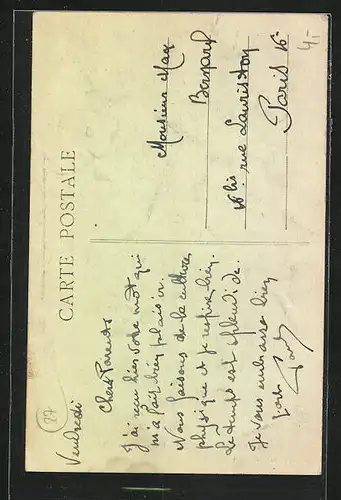 CARTE POSTALE
Vendredi
27
Chers Parents
J'ai reçu hier votre mot qui
m'a fait bien plaisir.
Nous faisons de la culture
physique et je respire bien.
Le temps est splendide.
Je vous embrasse bien
Monsieur Max
Bernard
16 bis rue Lauriston
Paris 16e
4.-